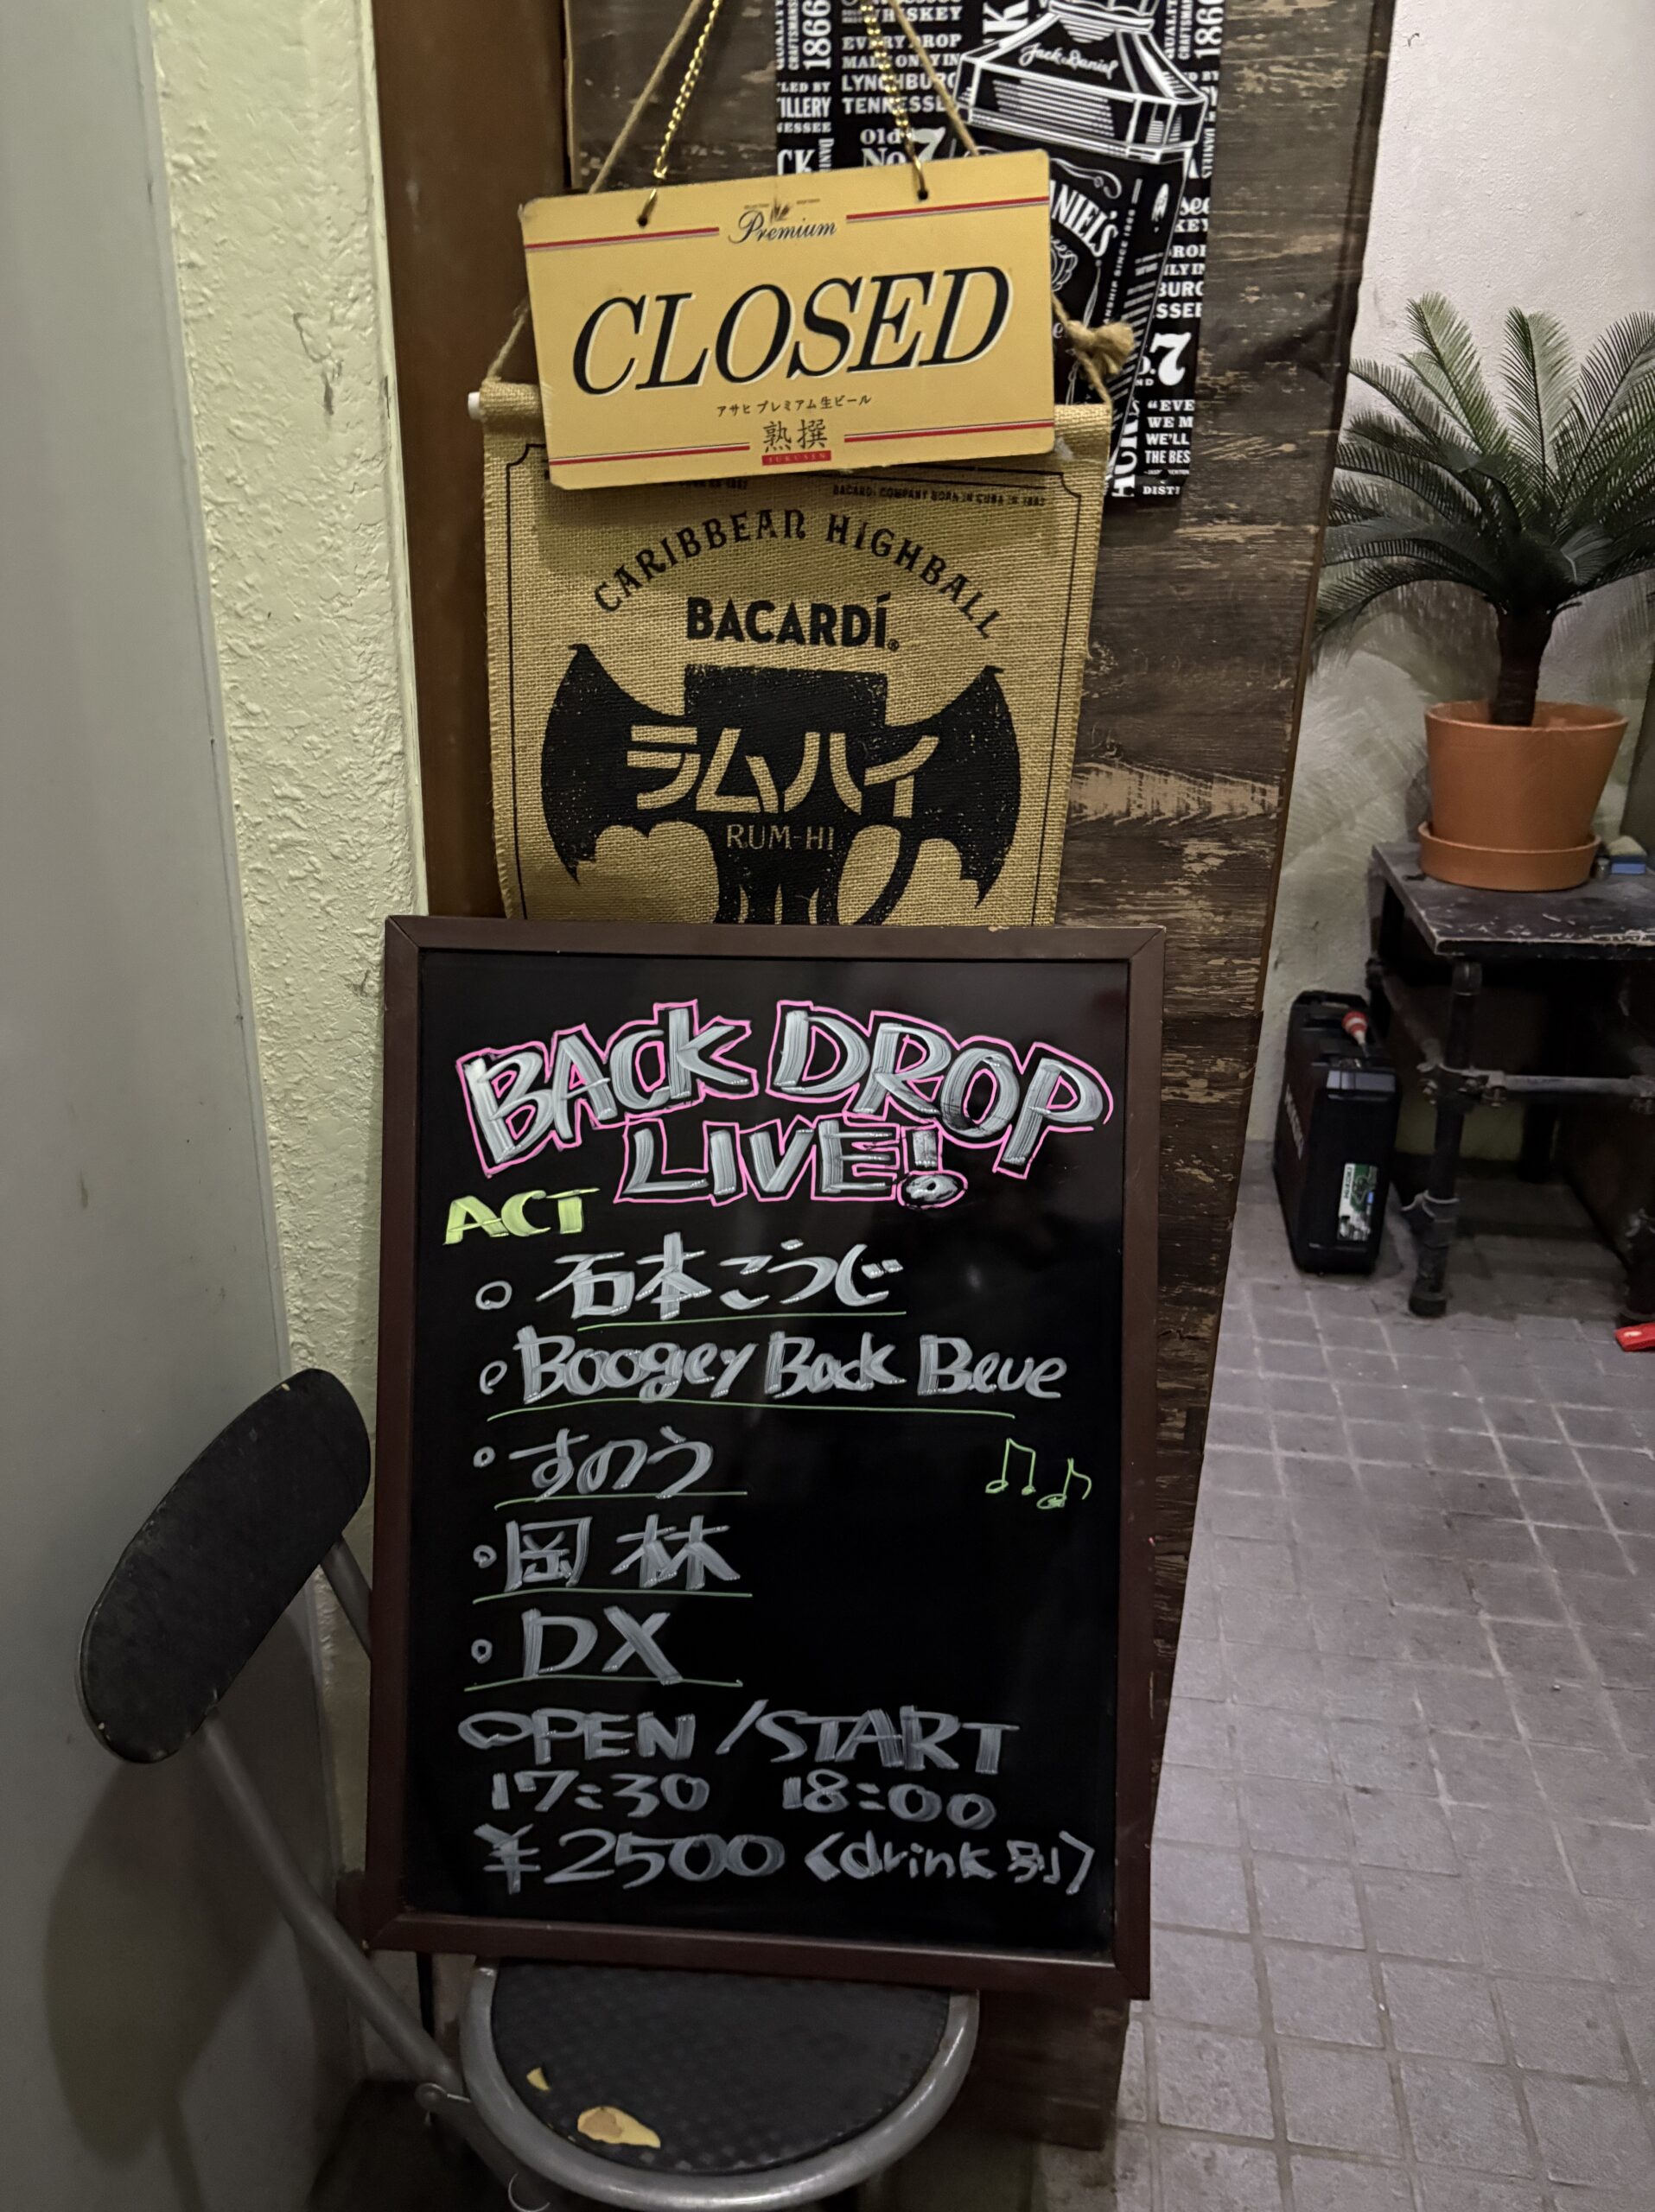 WHISKEY
EVERY DROP
MADE ONLY IN
LYNCHBURG
TENNESSEE
Old
No. 7
1866
Jack Daniel
Premium
CLOSED
アサヒ プレミアム生ビール
熟撰
JUKUSEN
BACARDI COMPANY BORN IN CUBA IN 1862
CARIBBEAN HIGHBALL
BACARDÍ®
ラムハイ
RUM-HI
BACK DROP
LIVE!
ACT
石本こうじ
Boogey Back Beue
すのう
岡林
DX
OPEN /START
17:30 18:00
¥2500 〈drink別〉